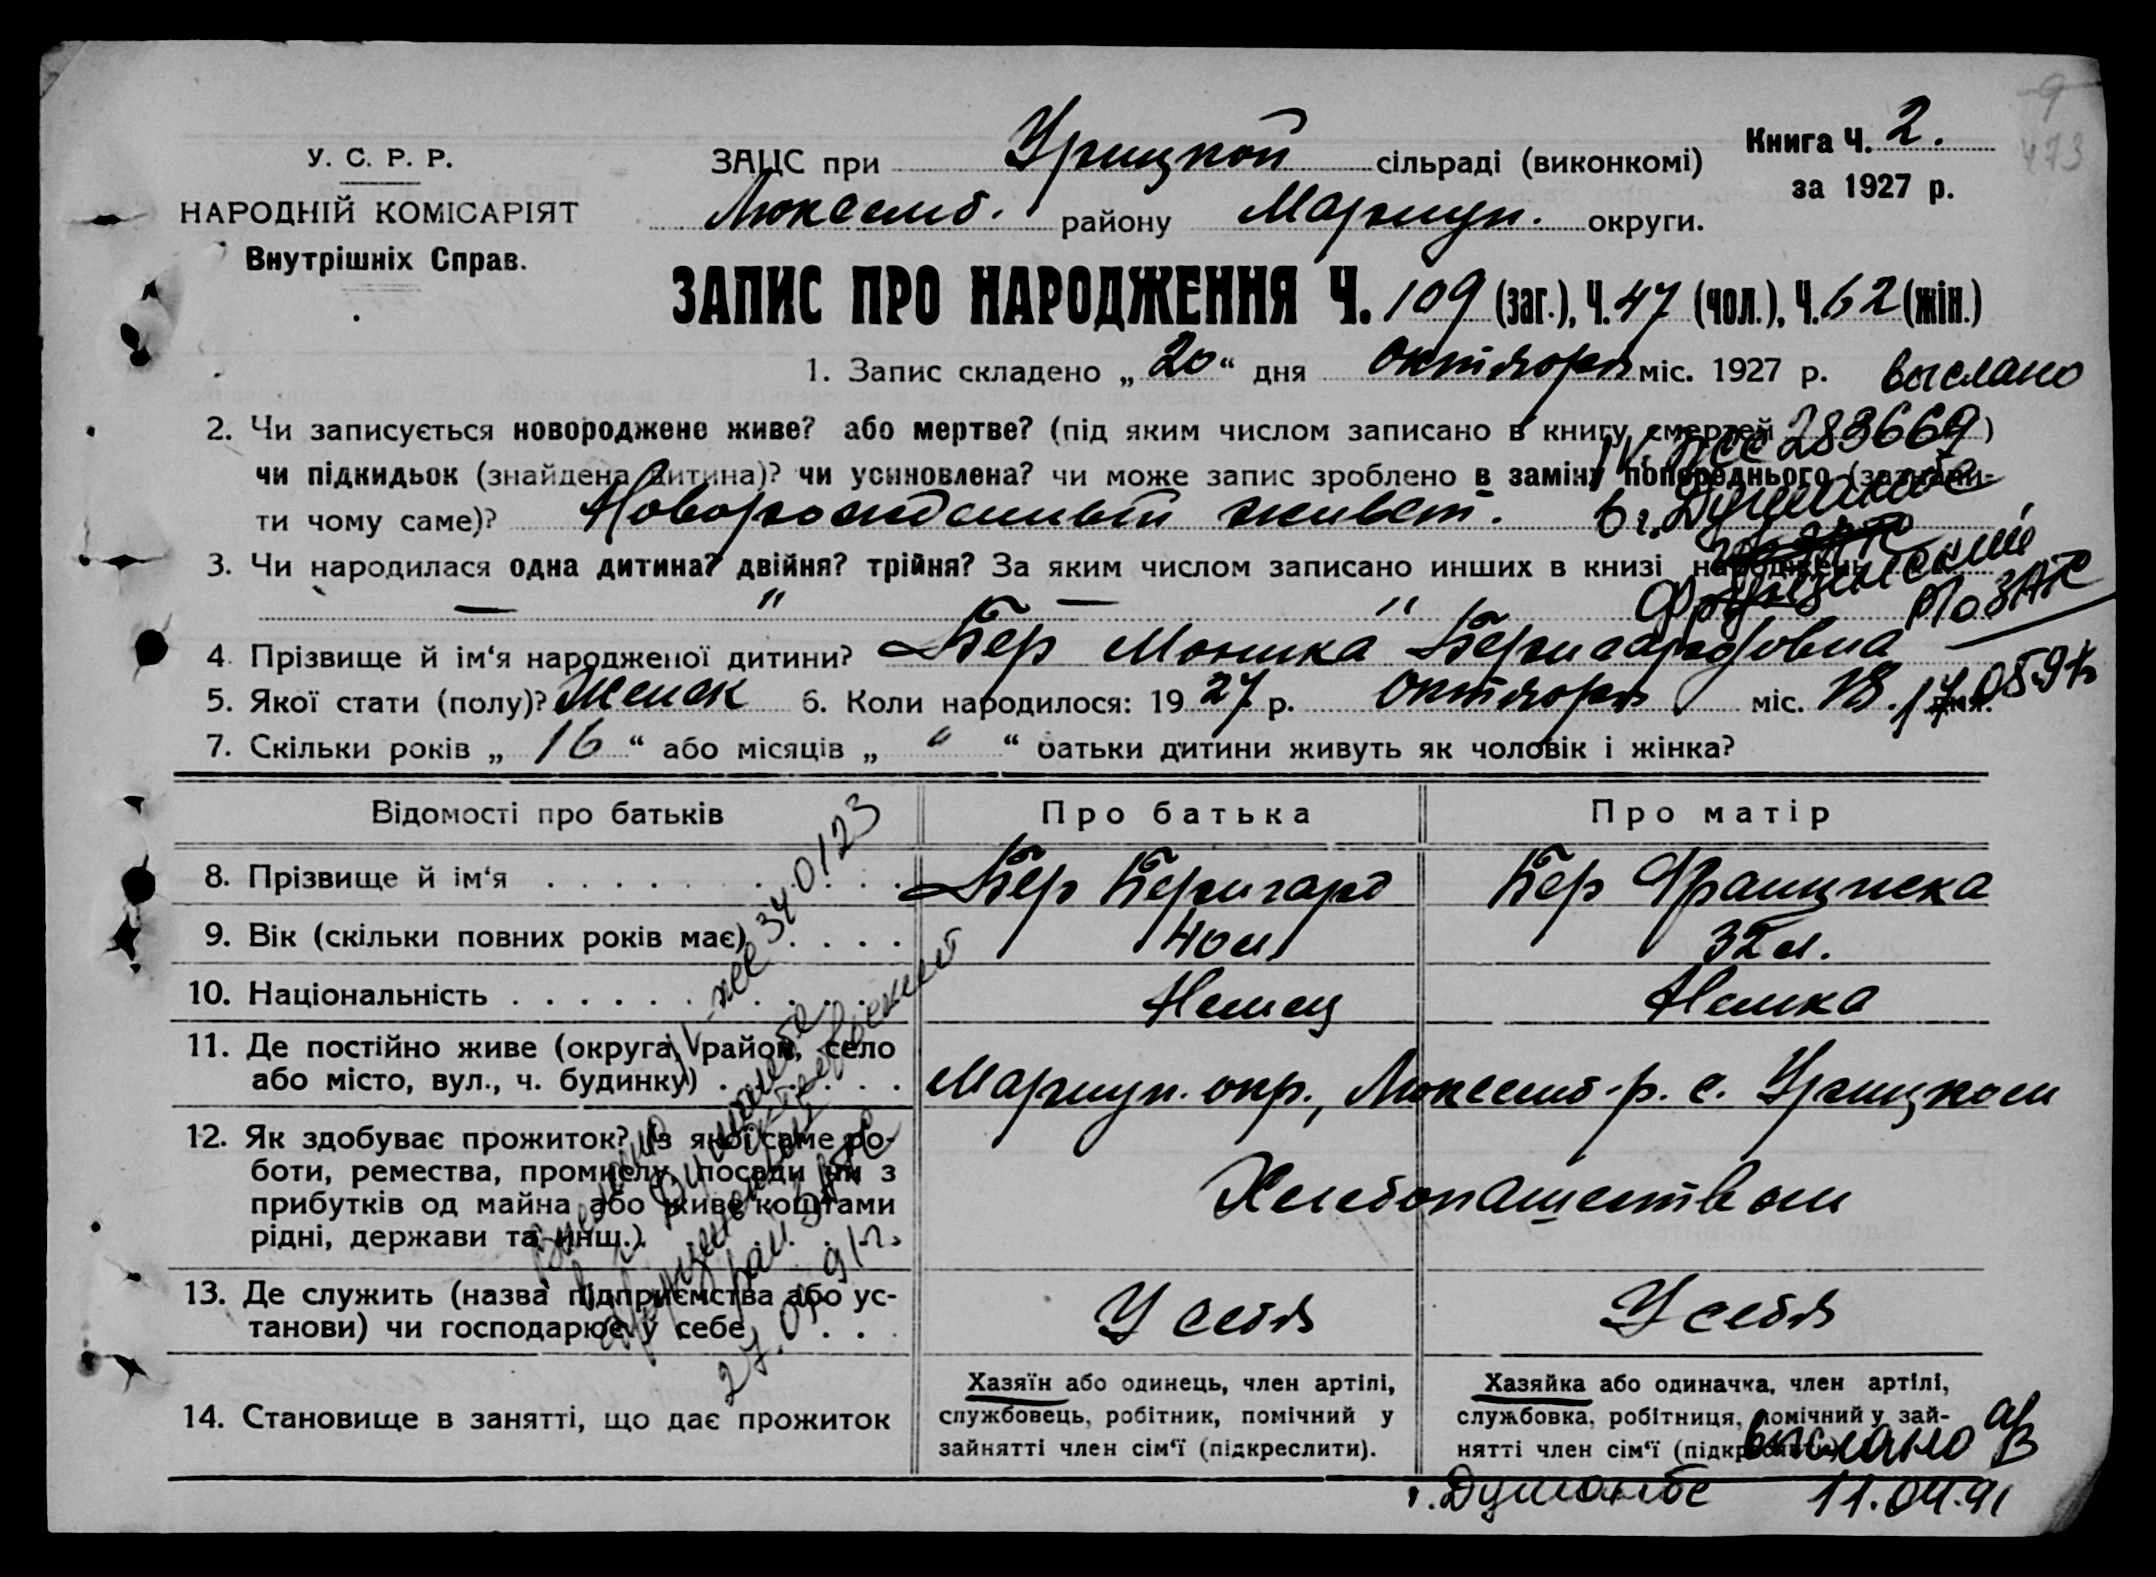 9
473
У. С. Р. Р.
НАРОДНІЙ КОМІСАРІЯТ
Внутрішніх Справ.
ЗАЦС при Урицкой сільраді (виконкомі)
Люксемб. району Мариуп. округи.
Книга Ч. 2.
за 1927 р.
ЗАПИС ПРО НАРОДЖЕННЯ Ч. 109 (заг.), Ч. 47 (чол.), Ч. 62 (жін.)
1. Запис складено „ 20 “ дня октября міс. 1927 р.
выслано
2. Чи записується новороджене живе? або мертве? (під яким числом записано в книгу смертей )
283669
чи підкидьок (знайдена дитина)? чи усыновлена? чи може запис зроблено в заміну попереднього (зазначи-
ти чому саме)? Новорожденный живет.
в г. Душанбе
3. Чи народилася одна дитина? двійня? трійня? За яким числом записано инших в книзі народжень
Фрунзенский
РоЗАГС
— " — "
4. Прізвище й ім‘я народженої дитини? Бер Моника Бернгардовна
5. Якої стати (полу)? Женск 6. Коли народилося: 19 27 р. октября міс. 18. дня.
7. Скільки років „ 16 “ або місяців „ " “ батьки дитини живуть як чоловік і жінка?
Відомості про батьків Про батька Про матір
8. Прізвище й ім‘я Бер Бернгард Бер Франциска
9. Вік (скільки повних років має) 40 л 32 л.
10. Національність Немец Немка
11. Де постійно живе (округа, район, село
або місто, вул., ч. будинку) Мариуп. окр., Люксемб-р. с. Урицком
12. Як здобуває прожиток? Із якої саме ро-
боти, ремества, промислу, посади чи з
прибутків од майна або живе коштами
рідні, держави та инш.)
Хлебопашеством
13. Де служить (назва підприємства або ус-
танови) чи господарює у себе У себя У себя
340123
Душанбе
27.04.91г.
14. Становище в занятті, що дає прожиток
Хазяїн або одинець, член артілі,
службовець, робітник, помічний у
зайнятті член сім‘ї (підкреслити).
Хазяйка або одиначка, член артілі,
службовка, робітниця, помічний у зай-
нятті член сім‘ї (підкреслити).
выслано ав
г. Душанбе 11.04.91